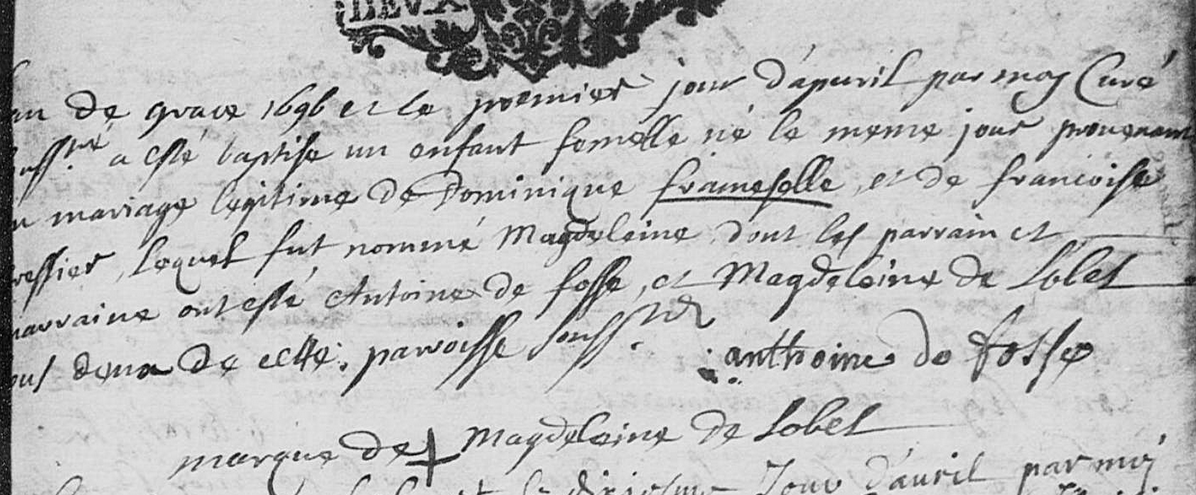 BEVA
an de grace 1696 et le premier jour d'apuril par moy Curé
ssné a esté baptise un enfant femelle né le meme jour provenant
mariage legitime de Dominique frameselle, et de francoise
essier, lequel fut nommé Magdeleine, dont les parrain et
marraine ont esté Antoine de fosse, et Magdeleine de Lobel
ous deux de cette parroisse souss.
anthoine de fosse
marque de + Magdeleine de Lobel
Jour d'auril par moy